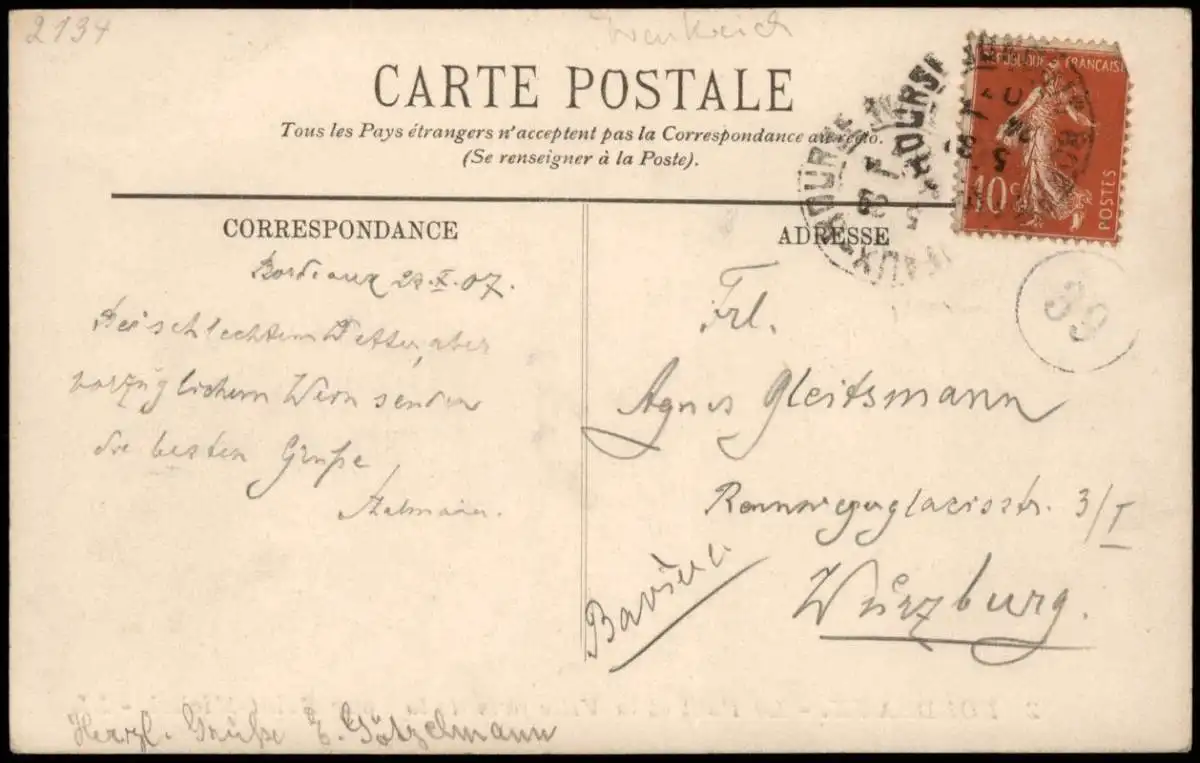 2134
CARTE POSTALE
Tous les Pays étrangers n'acceptent pas la Correspondance au recto.
(Se renseigner à la Poste).
RÉPUBLIQUE FRANÇAISE
10 c
POSTES
BOURSE
CORRESPONDANCE
Bordeaux 29.X.07.
Bei schlechtem Wetter, aber
vorzüglichem Wein senden
die besten Grüße
ADRESSE
39
Frl.
Agnes Gleitsmann
Rennwegerglacisstr. 3/I
Würzburg.
Bavière
Herzl. Grüße E. Götzelmann